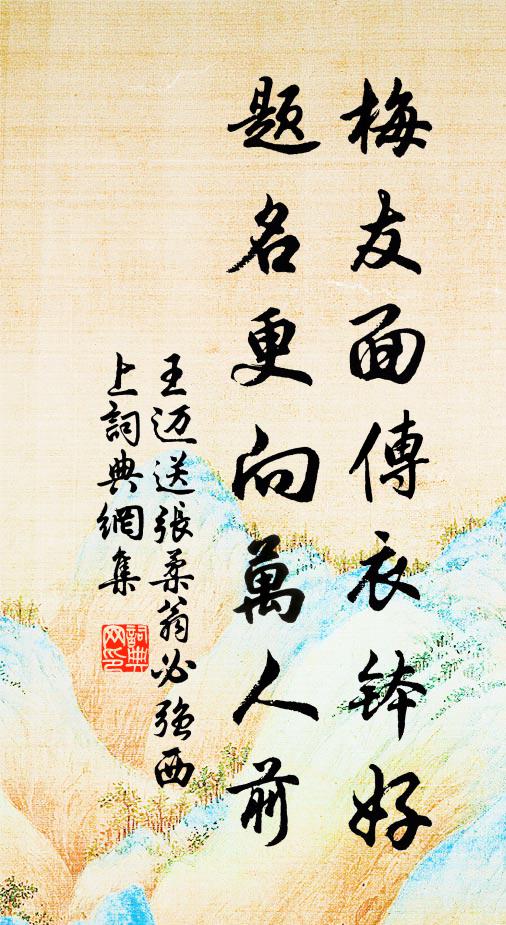 梅友面傳衣鉢好
題名更向萬人前
王迈送張柔翁必強西
上詞典網集
詞典
网印